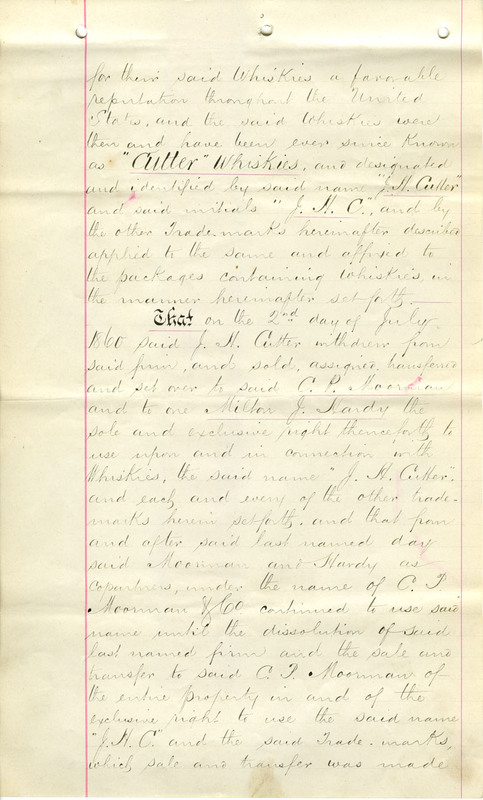 for their said Whiskies a favorable
reputation throughout the United
States, and the said Whiskies were
then and have been ever since known
as "Cutter" Whiskies, and designated
and identified by said name "J. H. Cutter"
and said initials "J. H. C.", and by
the other Trade-marks hereinafter described
applied to the same and affixed to
the packages containing Whiskies, in
the manner hereinafter setforth.
That on the 2nd day of July
1860 said J. H. Cutter withdrew from
said firm, and sold, assigned, transferred
and set over to said C. P. Moorman
and to one Milton J. Hardy the
sole and exclusive right thenceforth to
use upon and in connection with
Whiskies, the said name "J. H. Cutter",
and each and every of the other trade-
marks herein setforth, and that from
and after said last named day
said Moorman and Hardy as
copartners, under the name of C. P.
Moorman & Co continued to use said
name until the dissolution of said
last named firm and the sale and
transfer to said C. P. Moorman of
the entire property in and of the
exclusive right to use the said name
"J. H. C." and the said Trade-marks,
which sale and transfer was made